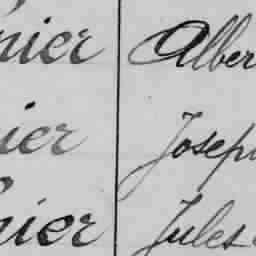 nier Alber
ier Joseph
nier Jules